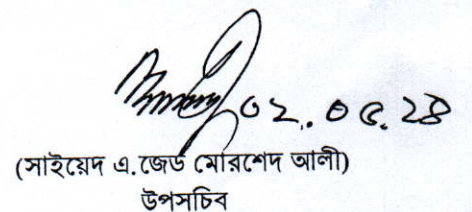 ০২.০৫.২৪
(সাইয়েদ এ.জেড মোরশেদ আলী)
উপসচিব